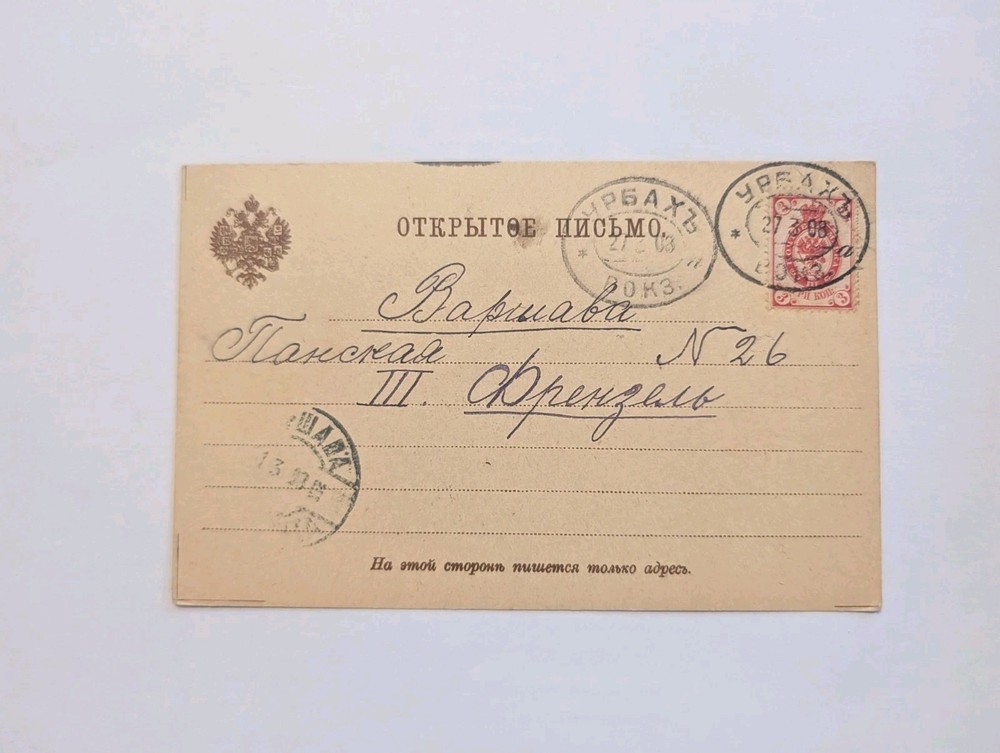 ОТКРЫТОЕ ПИСЬМО.
УРБАХЪ
27 3 08
ВОКЗ.
УРБАХЪ
27 3 08
а
ВОКЗ.
3 3
ТРИ КОП.
Варшава
Панская N 26
III. Френзель
ШАВА
На этой сторонѣ пишется только адресъ.